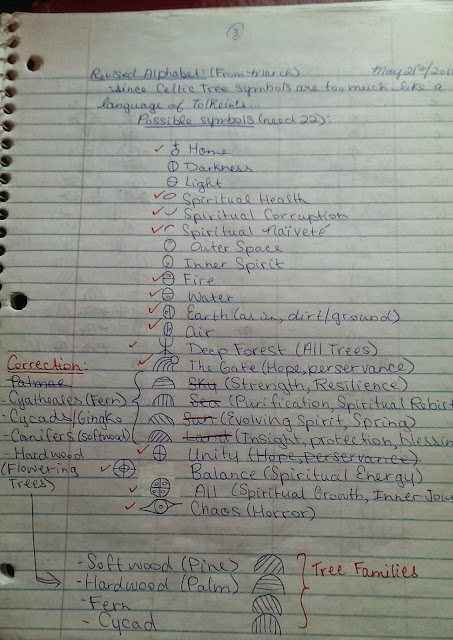 3
Revised Alphabet: (From March) May 21st/201
since Celtic Tree symbols are too much like a
language of Tolkeins...
Possible symbols (need 22):
Home
Darkness
Light
Spiritual Health
Spiritual Corruption
Spiritual Naïveté
Outer Space
Inner Spirit
Fire
Water
Earth (as in, dirt/ground)
Air
Deep Forest (All Trees)
Correction: The Gate (Hope, perservance)
Palmae Sky (Strength, Resilience)
-Cyatheales (Fern) Sea (Purification, Spiritual Rebirt
-Cycads/Gingko Sun (Evolving Spirit, Spring)
-Conifers (Softwood) Land (Insight, protection, blessin
-Hardwood Unity (Hope, Perservance)
(Flowering Balance (Spiritual Energy)
Trees) All (Spiritual Growth, Inner Jou
Chaos (Horror)
-Softwood (Pine)
-Hardwood (Palm) Tree Families
-Fern
-Cycad